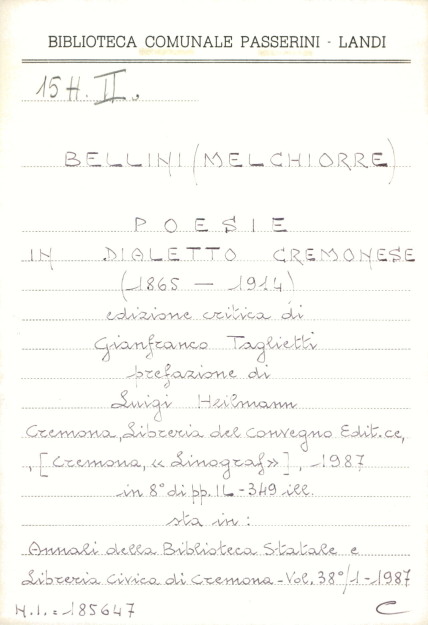 BIBLIOTECA COMUNALE PASSERINI - LANDI
15 H. II.
BELLINI (MELCHIORRE)
POESIE
IN DIALETTO CREMONESE
(1865 - 1914)
edizione critica di
Gianfranco Taglietti
prefazione di
Luigi Heilmann
Cremona, Libreria del Convegno Edit.ce,
, [Cremona, « Linograf»], 1987
in 8° di pp. IL - 349 ill.
sta in :
Annali della Biblioteca Statale e
Libreria Civica di Cremona - Vol. 38°/1 - 1987
N.I. = 185647 C